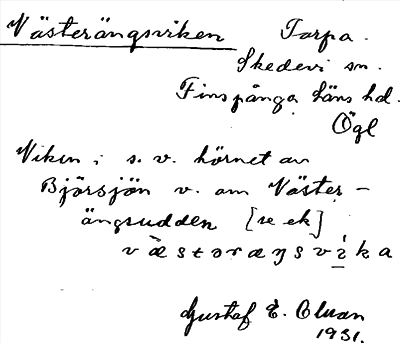 Västerängsviken Torpa.
Skedevi sn.
Finspånga läns hd.
Ögl
Viken i s. v. hörnet av
Björsjön v. om Väster-
ängsudden [se ek]
væstəræŋsvika
Gustaf E. Olson
1931.